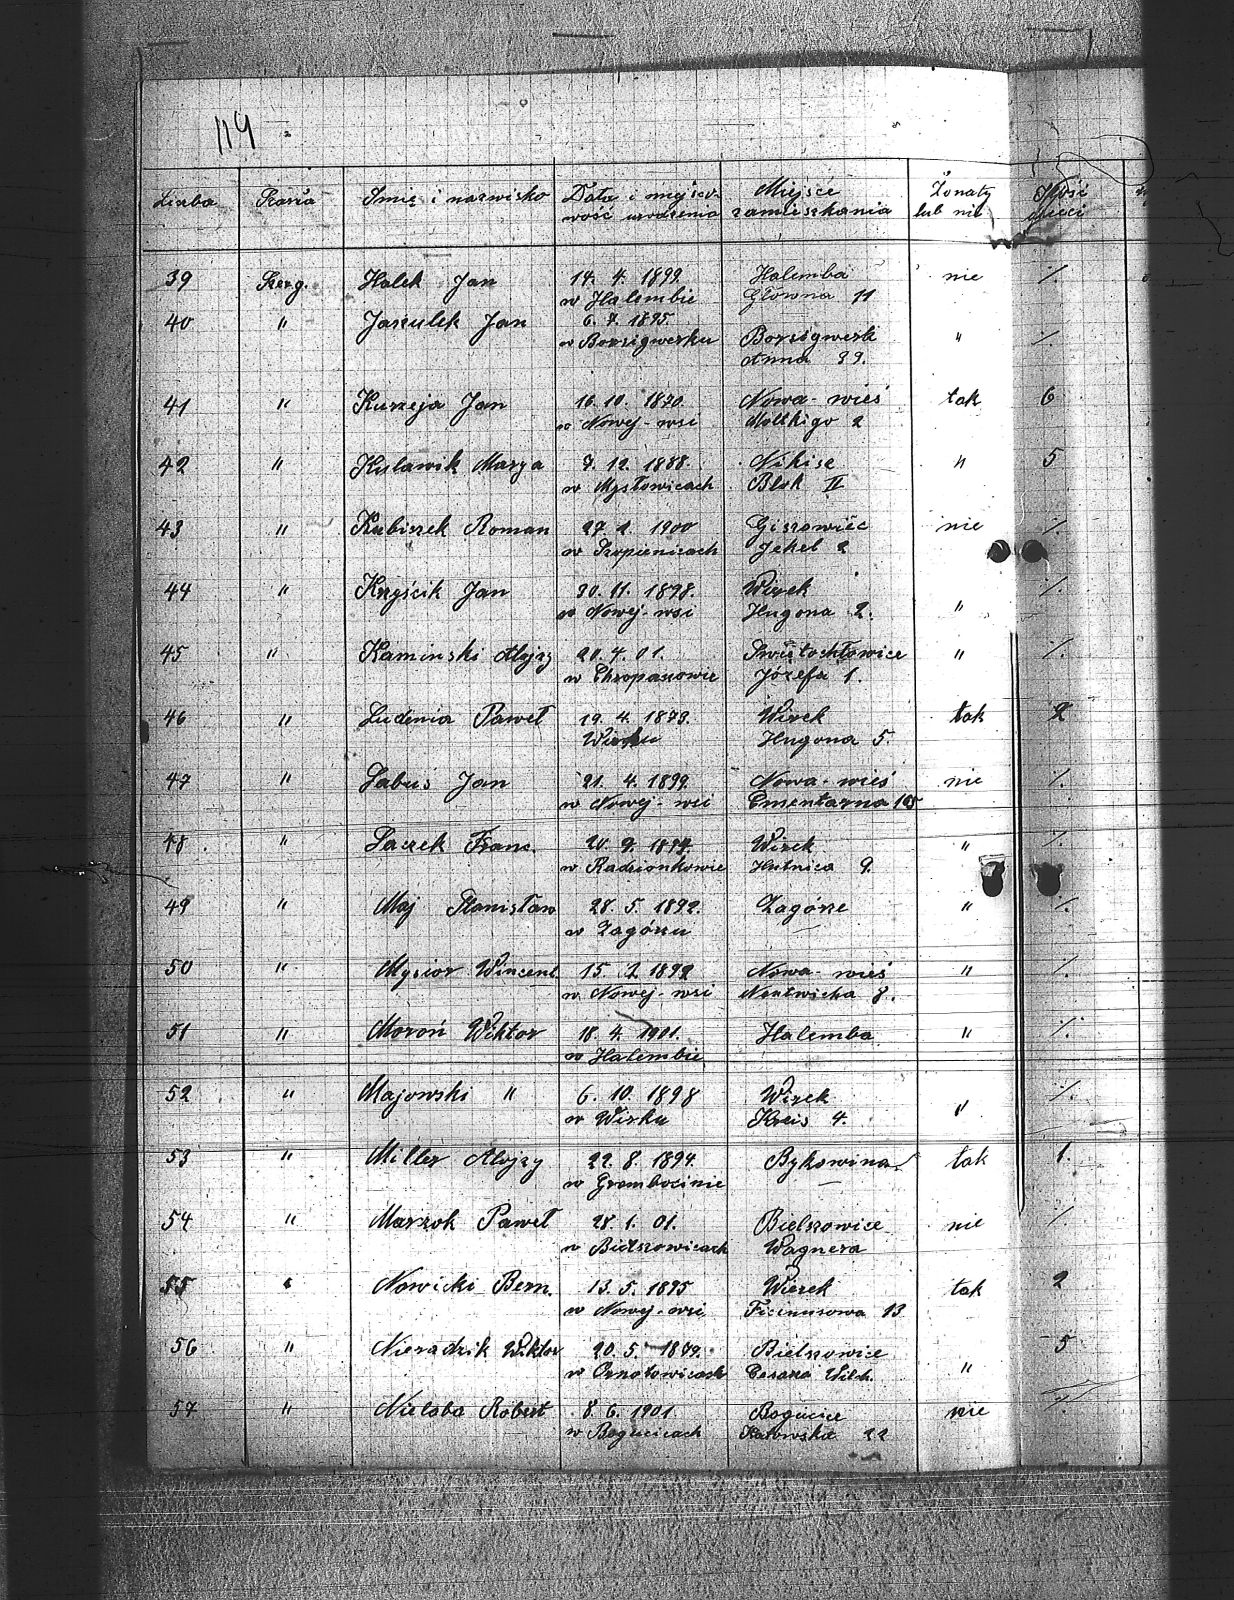 119
Liczba Szarża Imię i nazwisko Data i miejsco- Miejsce Żonaty Ilość
wość urodzenia zamieszkania lub nie dzieci
39 Szerg. Halek Jan 14. 4. 1899. Halemba nie /.
w Halembie Główna 11
40 " Jaszulek Jan 6. 7. 1895. Borsigwerk " /.
w Borsigwerku Anna 39.
41 " Kurzeja Jan 16. 10. 1870. Nowa-wieś tak 6
w Nowej-wsi Moltkigo 2
42 " Kulawik Marya 7. 12. 1888. Nikisz " 5
w Mysłowicach Blok II
43 " Kubiszek Roman 27. 2. 1900 Giszowiec nie /.
w Szopienicach Jekel 2
44 " Kryścik Jan 30. 11. 1898. Wirek " /.
w Nowej-wsi Hugona 2.
45 " Kaminski Alojzy 20. 4. 01. Świętochłowice " /.
w Chropaczowie Józefa 1.
46 " Ludenia Paweł 19. 4. 1873. Wirek tak 2
Wirku Hugona 5.
47 " Labuś Jan 21. 4. 1899. Nowa-wieś nie /.
w Nowej-wsi Cmentarna 10
48 " Laczek Franc. 20. 9. 1894. Wirek " /.
w Radzionkowie Hutnica 9.
49 " Maj Stanisław 28. 5. 1892. Zagórze " /.
w Zagórzu
50 " Mysior Wincent 15. 2. 1899 Nowa-wieś " /.
w Nowej-wsi 8.
51 " Moroń Wiktor 18. 4. 1901. Halemba " /.
w Halembie
52 " Majowski " 6. 10. 1898 Wirek " /.
w Wirku Kreis 4.
53 " Miller Alojzy 22. 8. 1894. Bykowina tak 1.
w Grembocinie
54 " Marzok Paweł 28. 1. 01. Bielszowice nie /
w Bielszowicach Wagnera
55 " Nowicki Bern. 13. 5. 1895 Wirek tak 2
w Nowej-wsi Ficinusowa 13
56 " Nieradzik Wiktor 20. 5. 1879. Bielszowice " 5
w Ornotowicach Cesarza Wilh.
57 " Nielaba Robert 8. 6. 1901. Bogucice nie /.
w Bogucicach Katowska 22